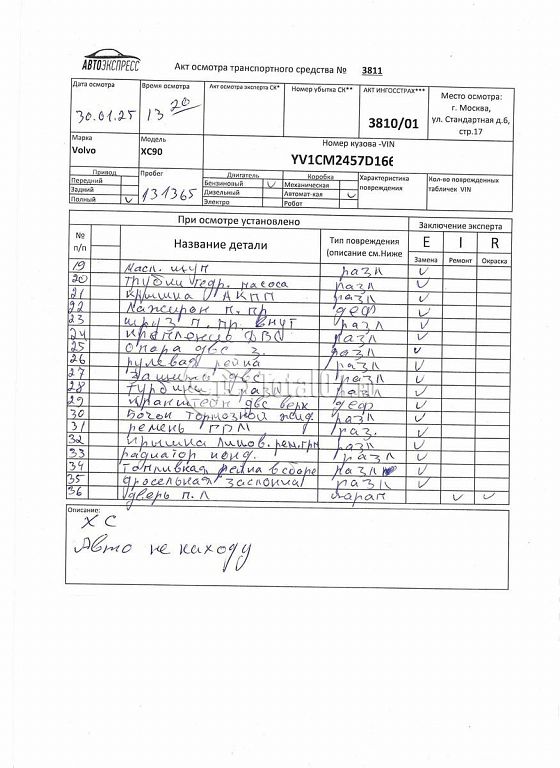 АВТОЭКСПРЕСС
Акт осмотра транспортного средства № 3811
Дата осмотра Время осмотра Акт осмотра эксперта СК* Номер убытка СК** АКТ ИНГОССТРАХ*** Место осмотра:
30.01.25 13 20 3810/01 г. Москва,
ул. Стандартная д.6,
стр.17
Марка Модель Номер кузова -VIN
Volvo XC90 YV1CM2457D166
Привод Пробег Двигатель Коробка Характеристика повреждения Кол-во поврежденных табличек VIN
Передний Бензиновый V Механическая
Задний 131365 Дизельный Автомат-кая V
Полный V Электро Робот
При осмотре установлено Заключение эксперта
№ п/п Название детали Тип повреждения (описание см.Ниже E I R
Замена Ремонт Окраска
19 Масл. щуп разл V
20 Трубки гидр. насоса разл V
21 Крышка АКПП разл V
22 Лонжерон п. пр деф V
23 шруз п. пр. внут разл V
24 Крепление ДВС разл V
25 Опора двс з. разл V
26 рулевая рейка разл V
27 Защита двс разл V
28 Турбина разл V
29 Кронштейн двс верх деф V
30 Бачок тормозной жид. разл V
31 ремень ГРМ раз. V
32 Крышка ремн. грм разл V
33 радиатор конд. разл V
34 Топливная рейка в сборе разл V
35 дросельная заслонка разл V
36 дверь п. Л царап V V
Описание:
ХС
Авто не на ходу